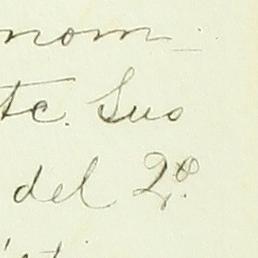 nom
te. Suo
del 2º.